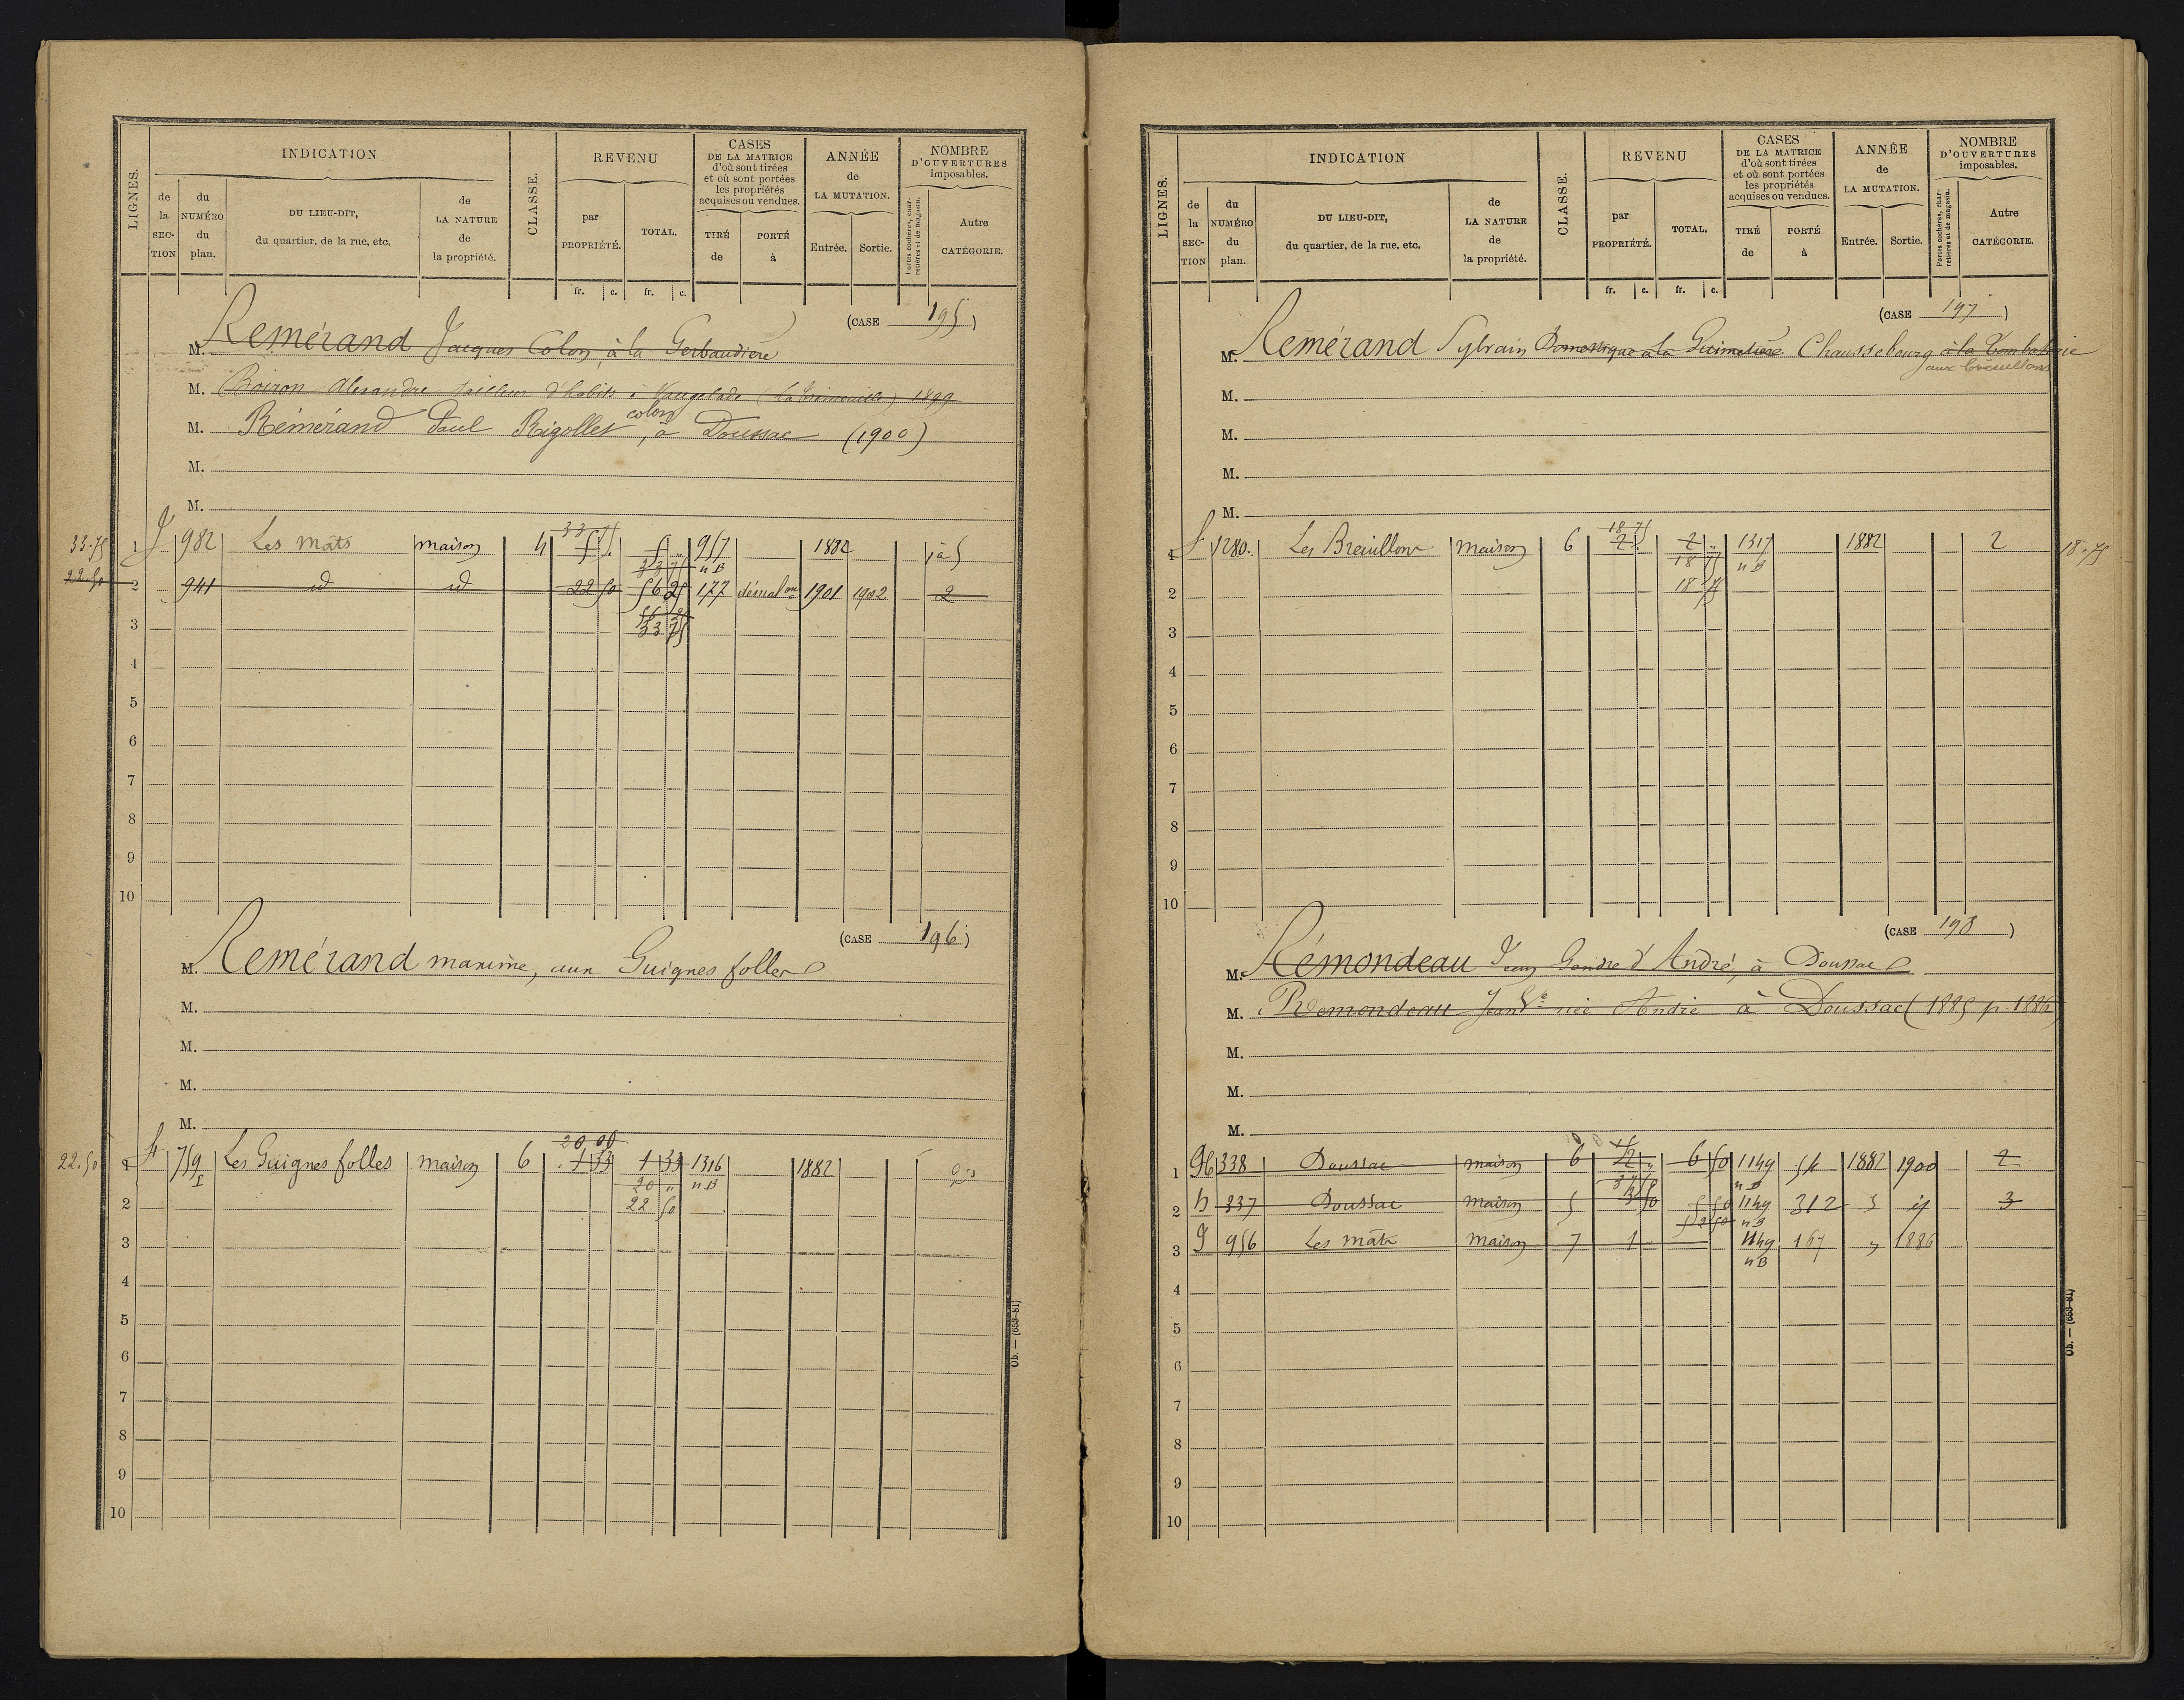 LIGNES.
INDICATION
de la SECTION
du NUMÉRO du plan.
DU LIEU-DIT, du quartier, de la rue, etc.
de LA NATURE de la propriété.
CLASSE.
REVENU
par PROPRIÉTÉ.
TOTAL.
CASES DE LA MATRICE d'où sont tirées et où sont portées les propriétés acquises ou vendues.
TIRÉ de
PORTÉ à
ANNÉE de LA MUTATION.
Entrée.
Sortie.
NOMBRE D'OUVERTURES imposables.
Portes cochères, charretières et de magasin.
Autre CATÉGORIE.
fr. c. fr. c.
(CASE 195)
M. Remérand Jacques Colon, à la Gerbaudière
M. Boiron Alexandre tailleur d'habits à 1899
colon
M. Rémérand Paul Rigollet, à Doussac (1900)
M.
M.
33.75
33 75
1 J 982 Les mâts maison 4 5 " 5 " 957 1882
33 75 n B
22.50 2 941 id id 22 50 56 25 177 1901 1902 2
33 75
3
4
5
6
7
8
9
10
(CASE 196)
M. Remérand maxime, aux Guignes folles
M.
M.
M.
M.
20 00
22.50 1 759 Les Guignes folles maison 6 1 33 1 33 1316 1882
I 20 " n B
2 22 50
3
4
5
6
7
8
9
10
Ob. — (653-81)
LIGNES.
INDICATION
de la SECTION
du NUMÉRO du plan.
DU LIEU-DIT, du quartier, de la rue, etc.
de LA NATURE de la propriété.
CLASSE.
REVENU
par PROPRIÉTÉ.
TOTAL.
CASES DE LA MATRICE d'où sont tirées et où sont portées les propriétés acquises ou vendues.
TIRÉ de
PORTÉ à
ANNÉE de LA MUTATION.
Entrée.
Sortie.
NOMBRE D'OUVERTURES imposables.
Portes cochères, charretières et de magasin.
Autre CATÉGORIE.
fr. c. fr. c.
(CASE 197)
M. Remérand Sylvain Domestique à la Guimetière Chaussebourg à la
aux Breuillons
M.
M.
M.
M.
18 75
1 1280 Les Breuillons maison 6 2 " 2 " 1317 1882 2 18.75
18 75 n B
2 18 75
3
4
5
6
7
8
9
10
(CASE 198)
M. Rémondeau Jean Gendre d'André, à Doussac
M. Remondeau Jean Ve née André à Doussac (1885 p. 1886)
M.
M.
M.
1 338 Doussac maison 6 6 50 1149 54 1882 1900 2
n B
2 337 Doussac maison 5 5 50 1149 312 3
52 50 n B
3 956 Les mâts maison 7 1 " 1149 167 " 1886
n B
4
5
6
7
8
9
10
Ob. — (653-81)